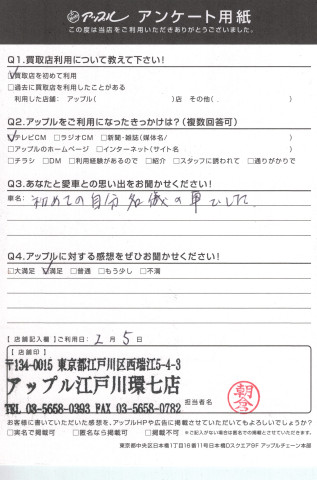 アップル アンケート用紙
この度は当店をご利用いただきありがとうございました。
Q1.買取店利用について教えて下さい!
☑買取店を初めて利用
□過去に買取店を利用したことがある
利用した店舗: アップル( )店 その他( )
Q2.アップルをご利用になったきっかけは?(複数回答可)
☑テレビCM □ラジオCM □新聞・雑誌(媒体名/ )
□アップルのホームページ □インターネット(サイト名 )
□チラシ □DM □利用経験があるので □紹介 □スタッフに誘われて □通りがかりで
Q3.あなたと愛車との思い出をお聞かせください!
車名: 初めての自分名儀の車でした
Q4.アップルに対する感想をぜひお聞かせください!
□大満足 ☑満足 □普通 □もう少し □不満
【店舗記入欄】ご利用日: 2月5日
【店舗印】
〒134-0015 東京都江戸川区西瑞江5-4-3
アップル江戸川環七店
担当者名 朝倉
TEL 03-5658-0393 FAX 03-5658-0782
お客様に書いていただいた感想を、アップルHPや広告に掲載させていただいてもよろしいでしょうか?
□実名で掲載可 □匿名なら掲載可 □掲載不可 ※ご記入がない場合は匿名での掲載とさせていただきます。
東京都中央区日本橋1丁目16番11号日本橋Dスクエア9F アップルチェーン本部